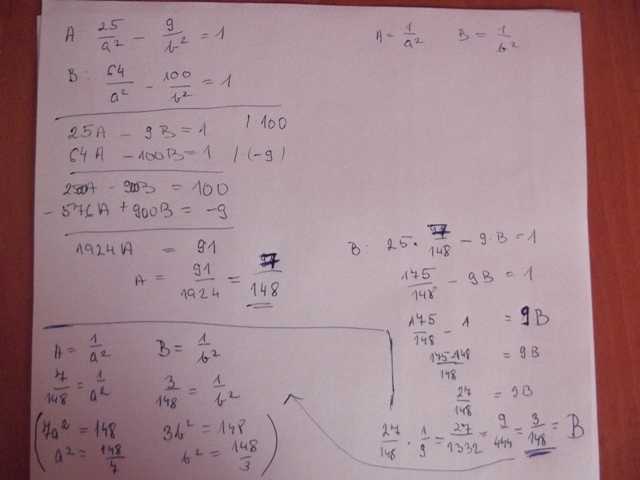 A 25/a² - 9/b² = 1
A = 1/a² B = 1/b²
B: 64/a² - 100/b² = 1
25A - 9B = 1 /·100
64A - 100B = 1 /·(-9)
2500A - 900B = 100
- 576A + 900B = -9
1924A = 91
A = 91/1924 = 7/148
B: 25 · 7/148 - 9·B = 1
175/148 - 9B = 1
175/148 - 1 = 9B
175-148/148 = 9B
27/148 = 9B
27/148 · 1/9 = 27/1332 = 9/444 = 3/148 = B
A = 1/a² B = 1/b²
7/148 = 1/a² 3/148 = 1/b²
7a² = 148 3b² = 148
a² = 148/7 b² = 148/3